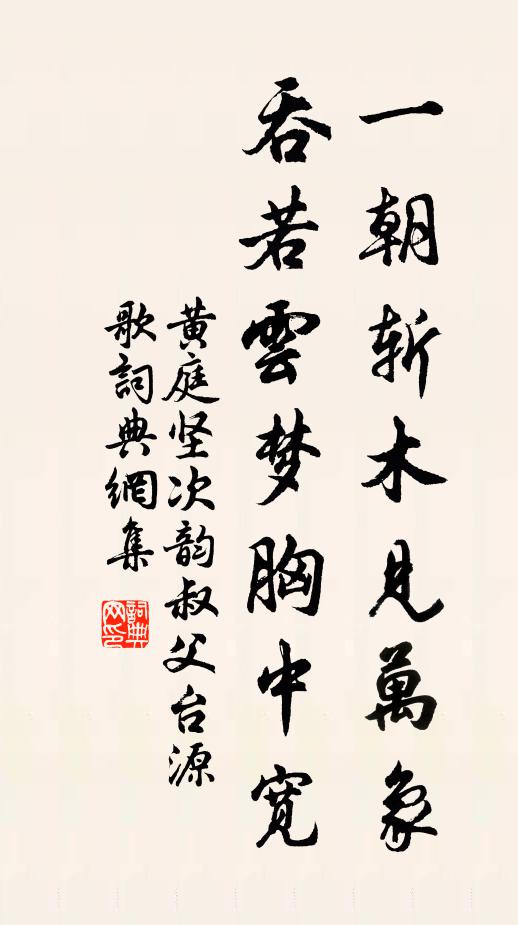 一朝斩木見萬象
吞若雲梦胸中寬
黄庭坚次韵叔父台源
歌詞典網集
詞典网印